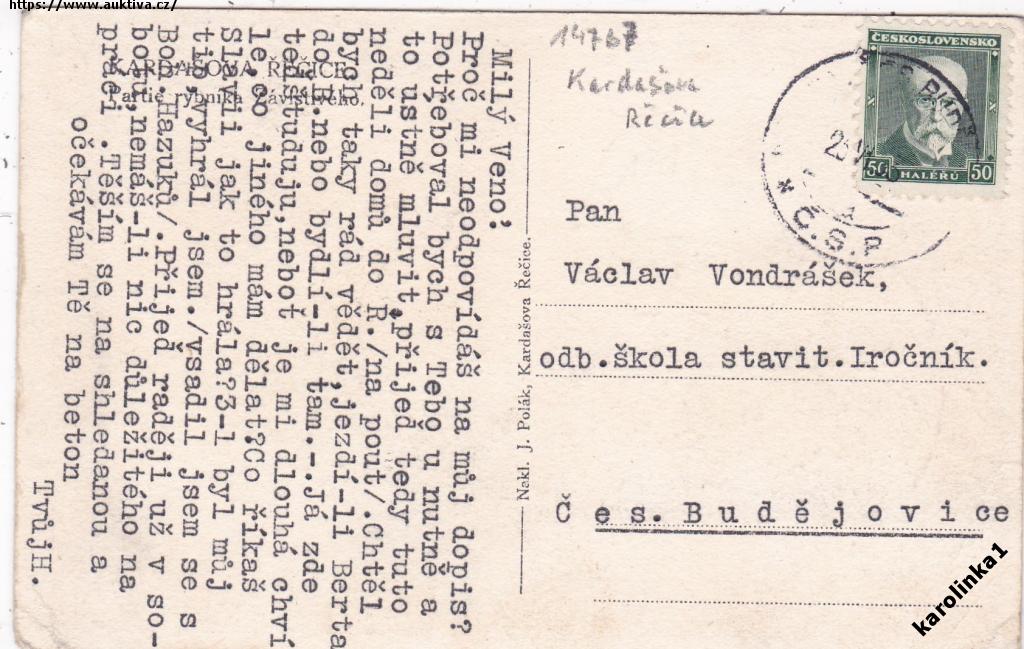 https://www.auktiva.cz/
14767
Kardašova
Řečice
ČESKOSLOVENSKO
50 50
HALÉŘŮ
Č.S.
KARDAŠOVA ŘEČICE.
Partie rybníka Závistivého.
Milý Veno;
Proč mi neodpovídáš na můj dopis?
Potřeboval bych s Tebou nutně a
to ustně mluvit,přijeď tedy tuto
neděli domů do R./na pout/.Chtěl
bych taky rád vědět,jezdí-li Berta
do B.nebo bydlí-li tam.-.Já zde
teď studuju,nebot je mi dlouhá chví
le,co jiného mám dělat?Co říkaš
Slavii jak to hrála?3-1 byl můj
tip,vyhrál jsem./vsadil jsem se s
Boh.Hazuků/.Přijeď raději už v so-
botu,nemáš-li nic důležitého na
práci .Těším se na shledanou a
očekávám Tě na beton
TvůjH.
Nakl. J. Polák, Kardašova Řečice.
Pan
Václav Vondrášek,
odb.škola stavit.Iročník.
Čes.Budějovice
karolinka1